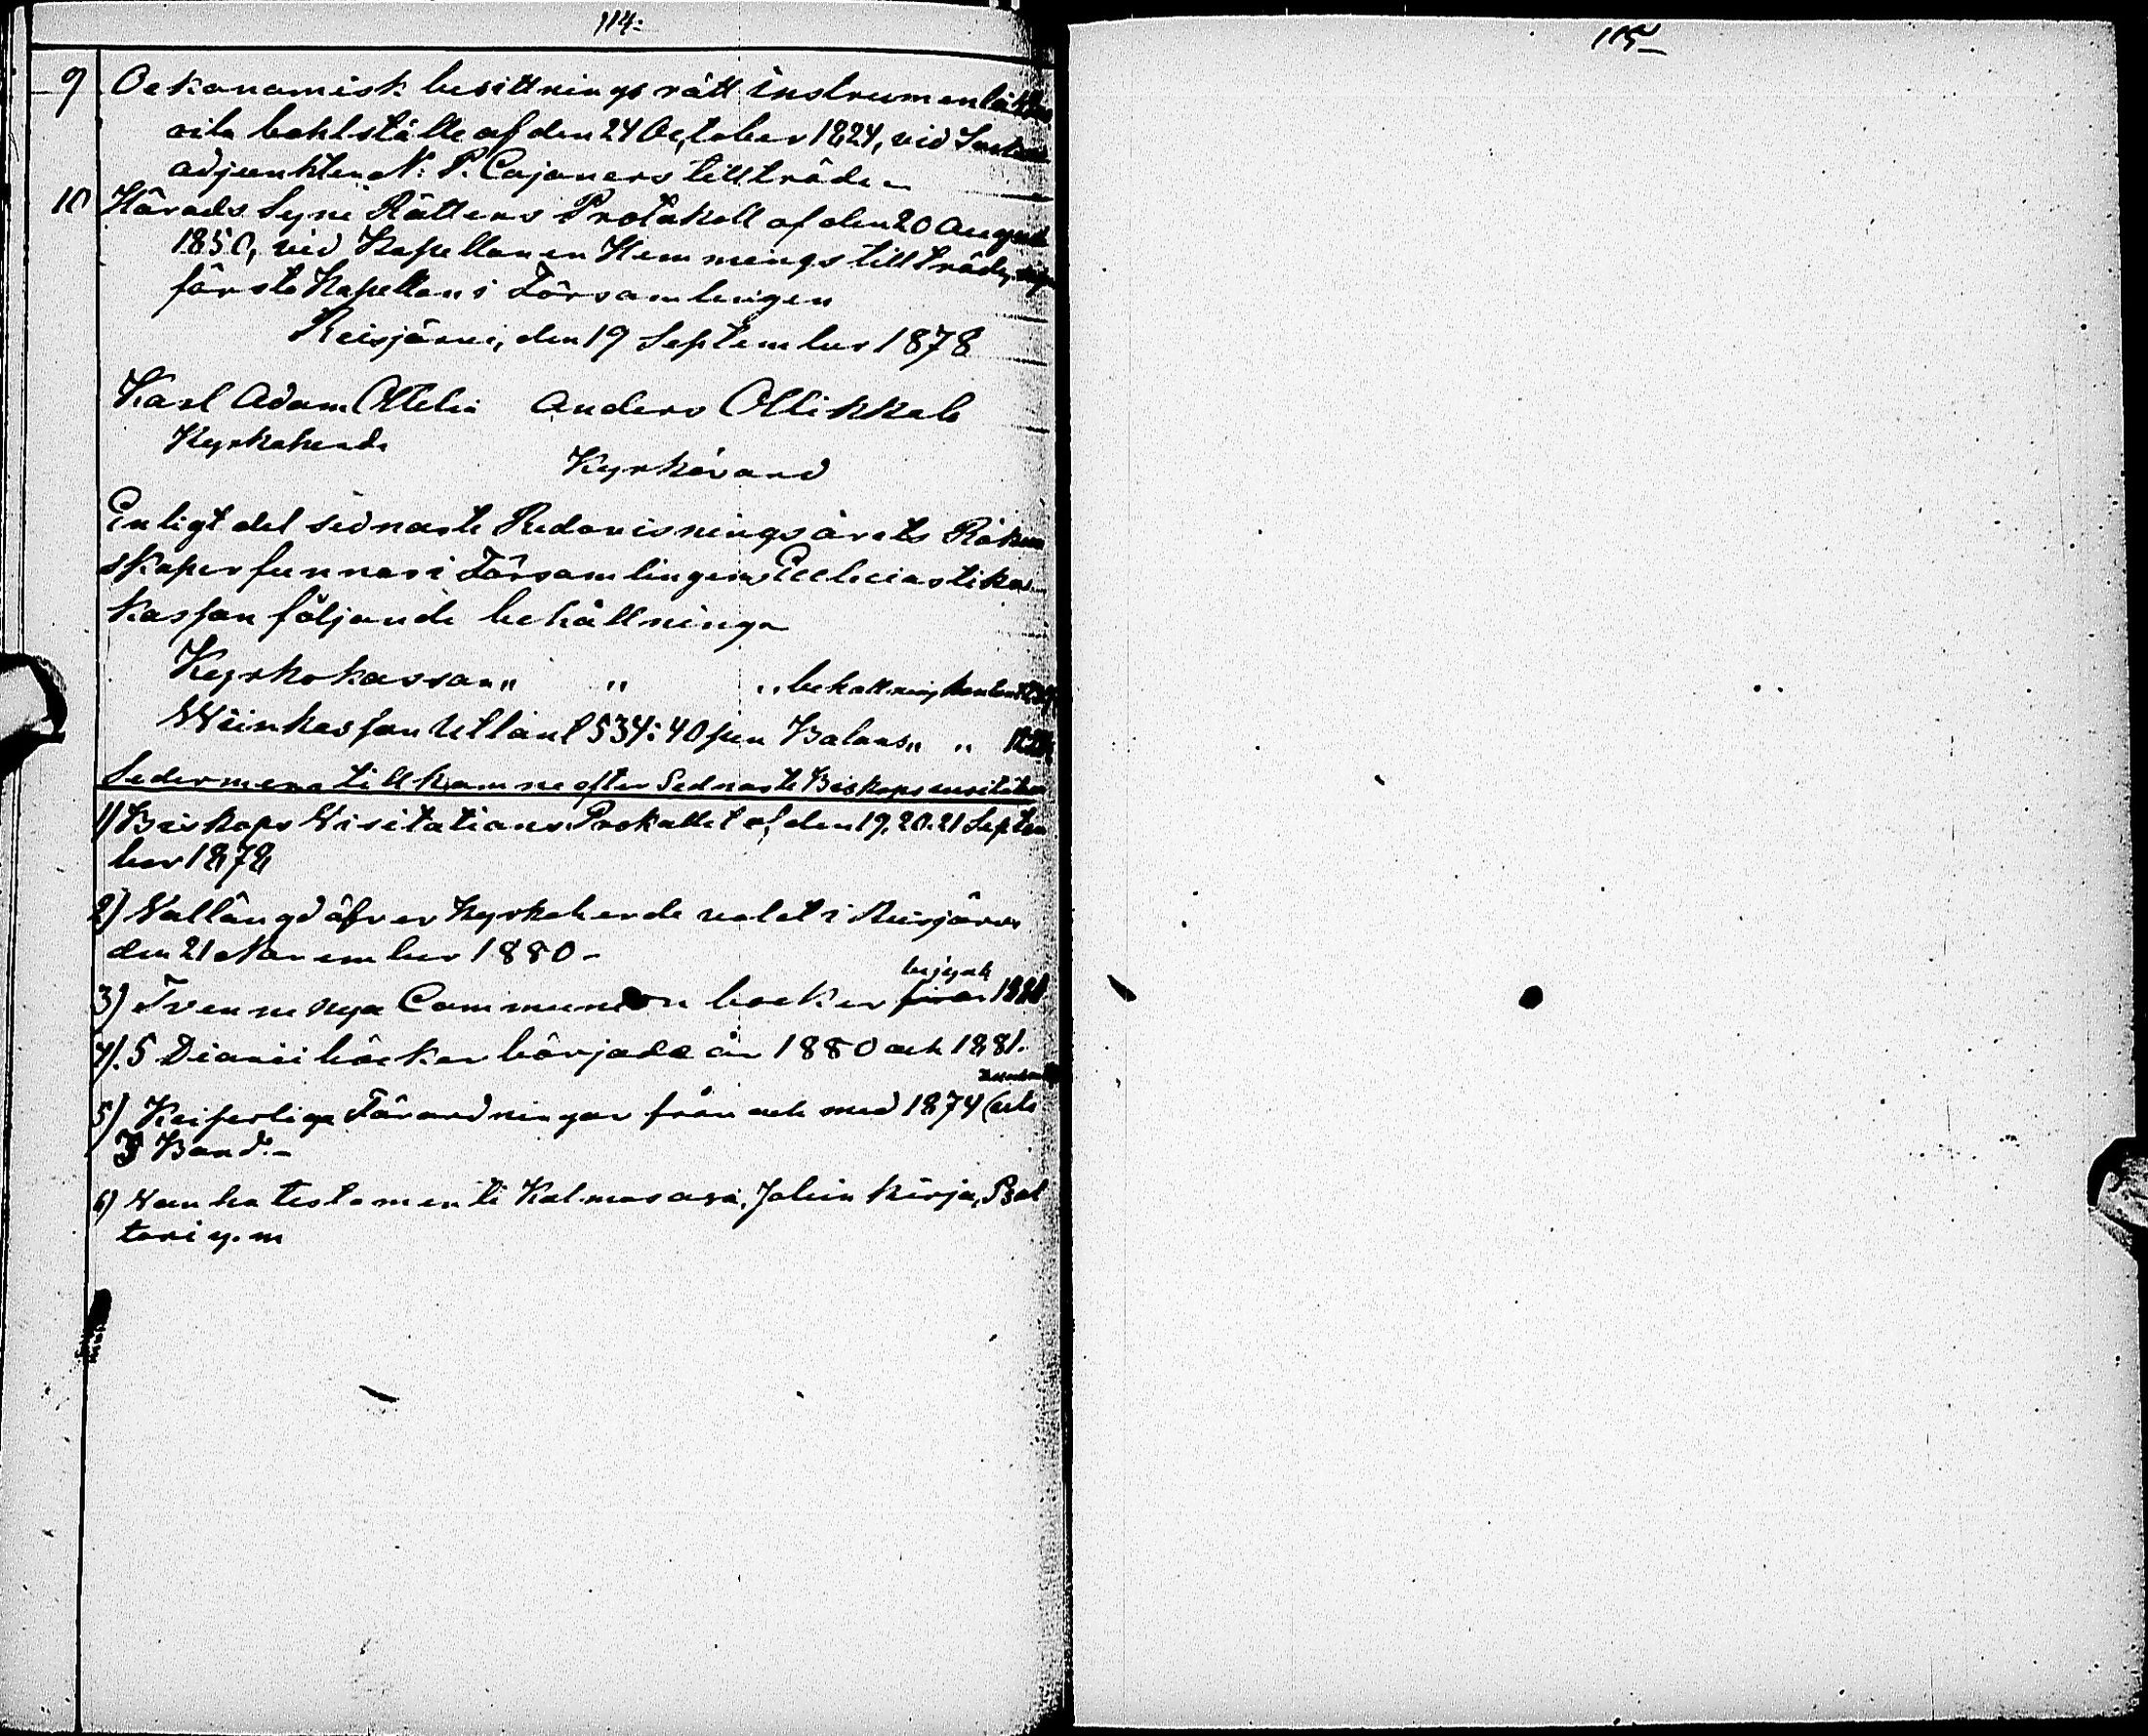 114:
9 Oekonomisk besittnings rätt instrument
vita bohlställe af den 24 October 1824, vid
adjunkten N: P. Cajaners tillträde
10 Härads Syne Rättens Protokoll af den 20 August
1850, vid Kapellanen Hemmings tillträde,
första Kapellan i Församlingen
Reisjärvi, den 19 September 1878
Karl Adam Ottelin Anders Ollikkala
Kyrkoherde
Kyrkövard
Enligt det sednaste Redovisningsårets Räken
skaper funnos i Församlingens Ecclesiastika
Kassan följande behållninga
Kyrkokassan " " " behållning
Wiinkassan Utlånt 534: 40 pen Balans " "
Sedermera tillkomne efter Sednaste Biskopsvisitation
1) Biskops Visitations Prokollet af den 19, 20. 21 Septem
ber 1878
2) Vallängd öfver Kyrkoherde valet i Reisjärvi
den 21 November 1880 -
3) Tvenne nya Communion böcker
4). 5 Diarii böcker började år 1880 och 1881.
5) Keiserliga Förordningar från och med 1874
3 Band. -
6) Vanha testamenti Kolmas osa, Jobin kirja, Psal
tari y. m
115